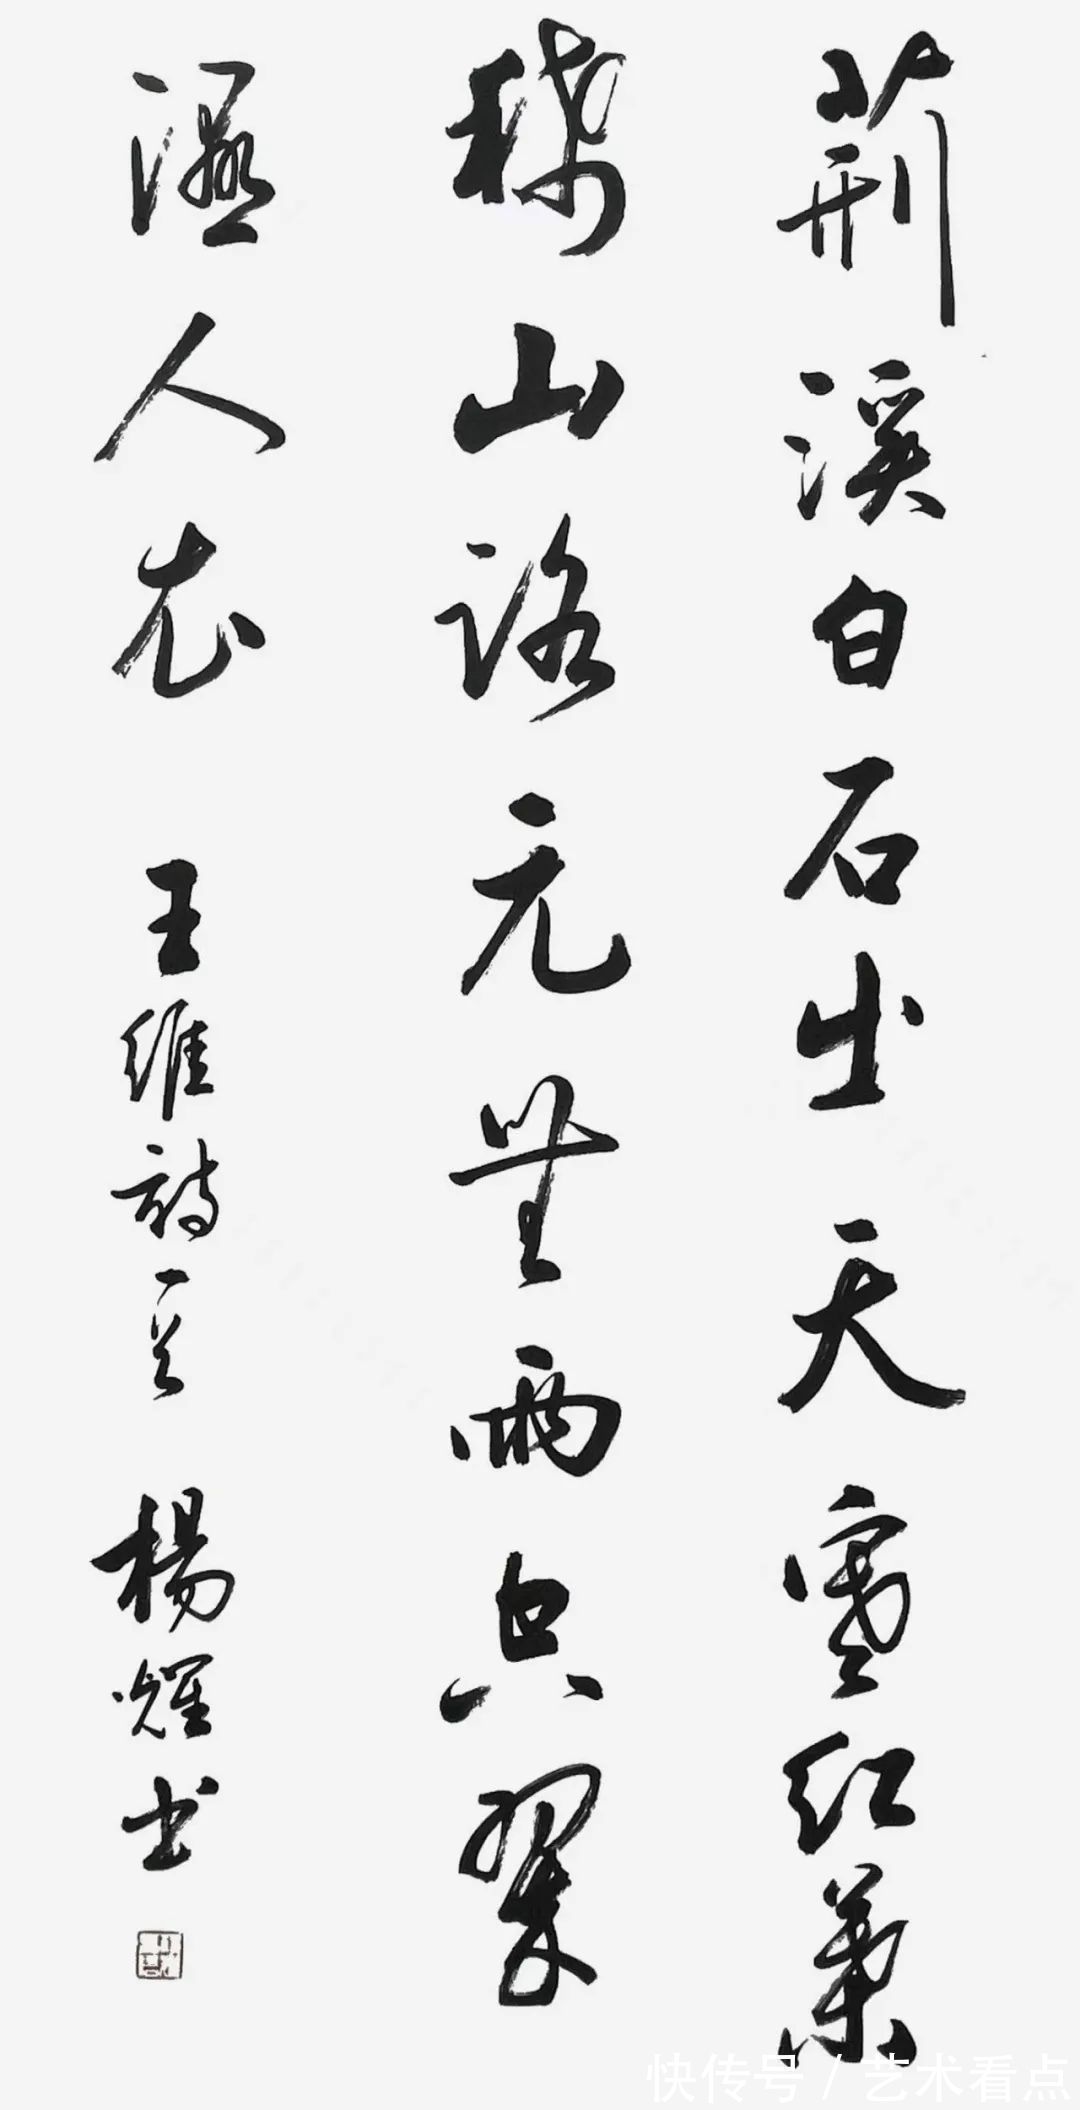 荊溪白石出天寒紅葉
稀山路元無雨空翠
濕人衣 王維詩一首 楊耀書
快传号 / 艺术看点